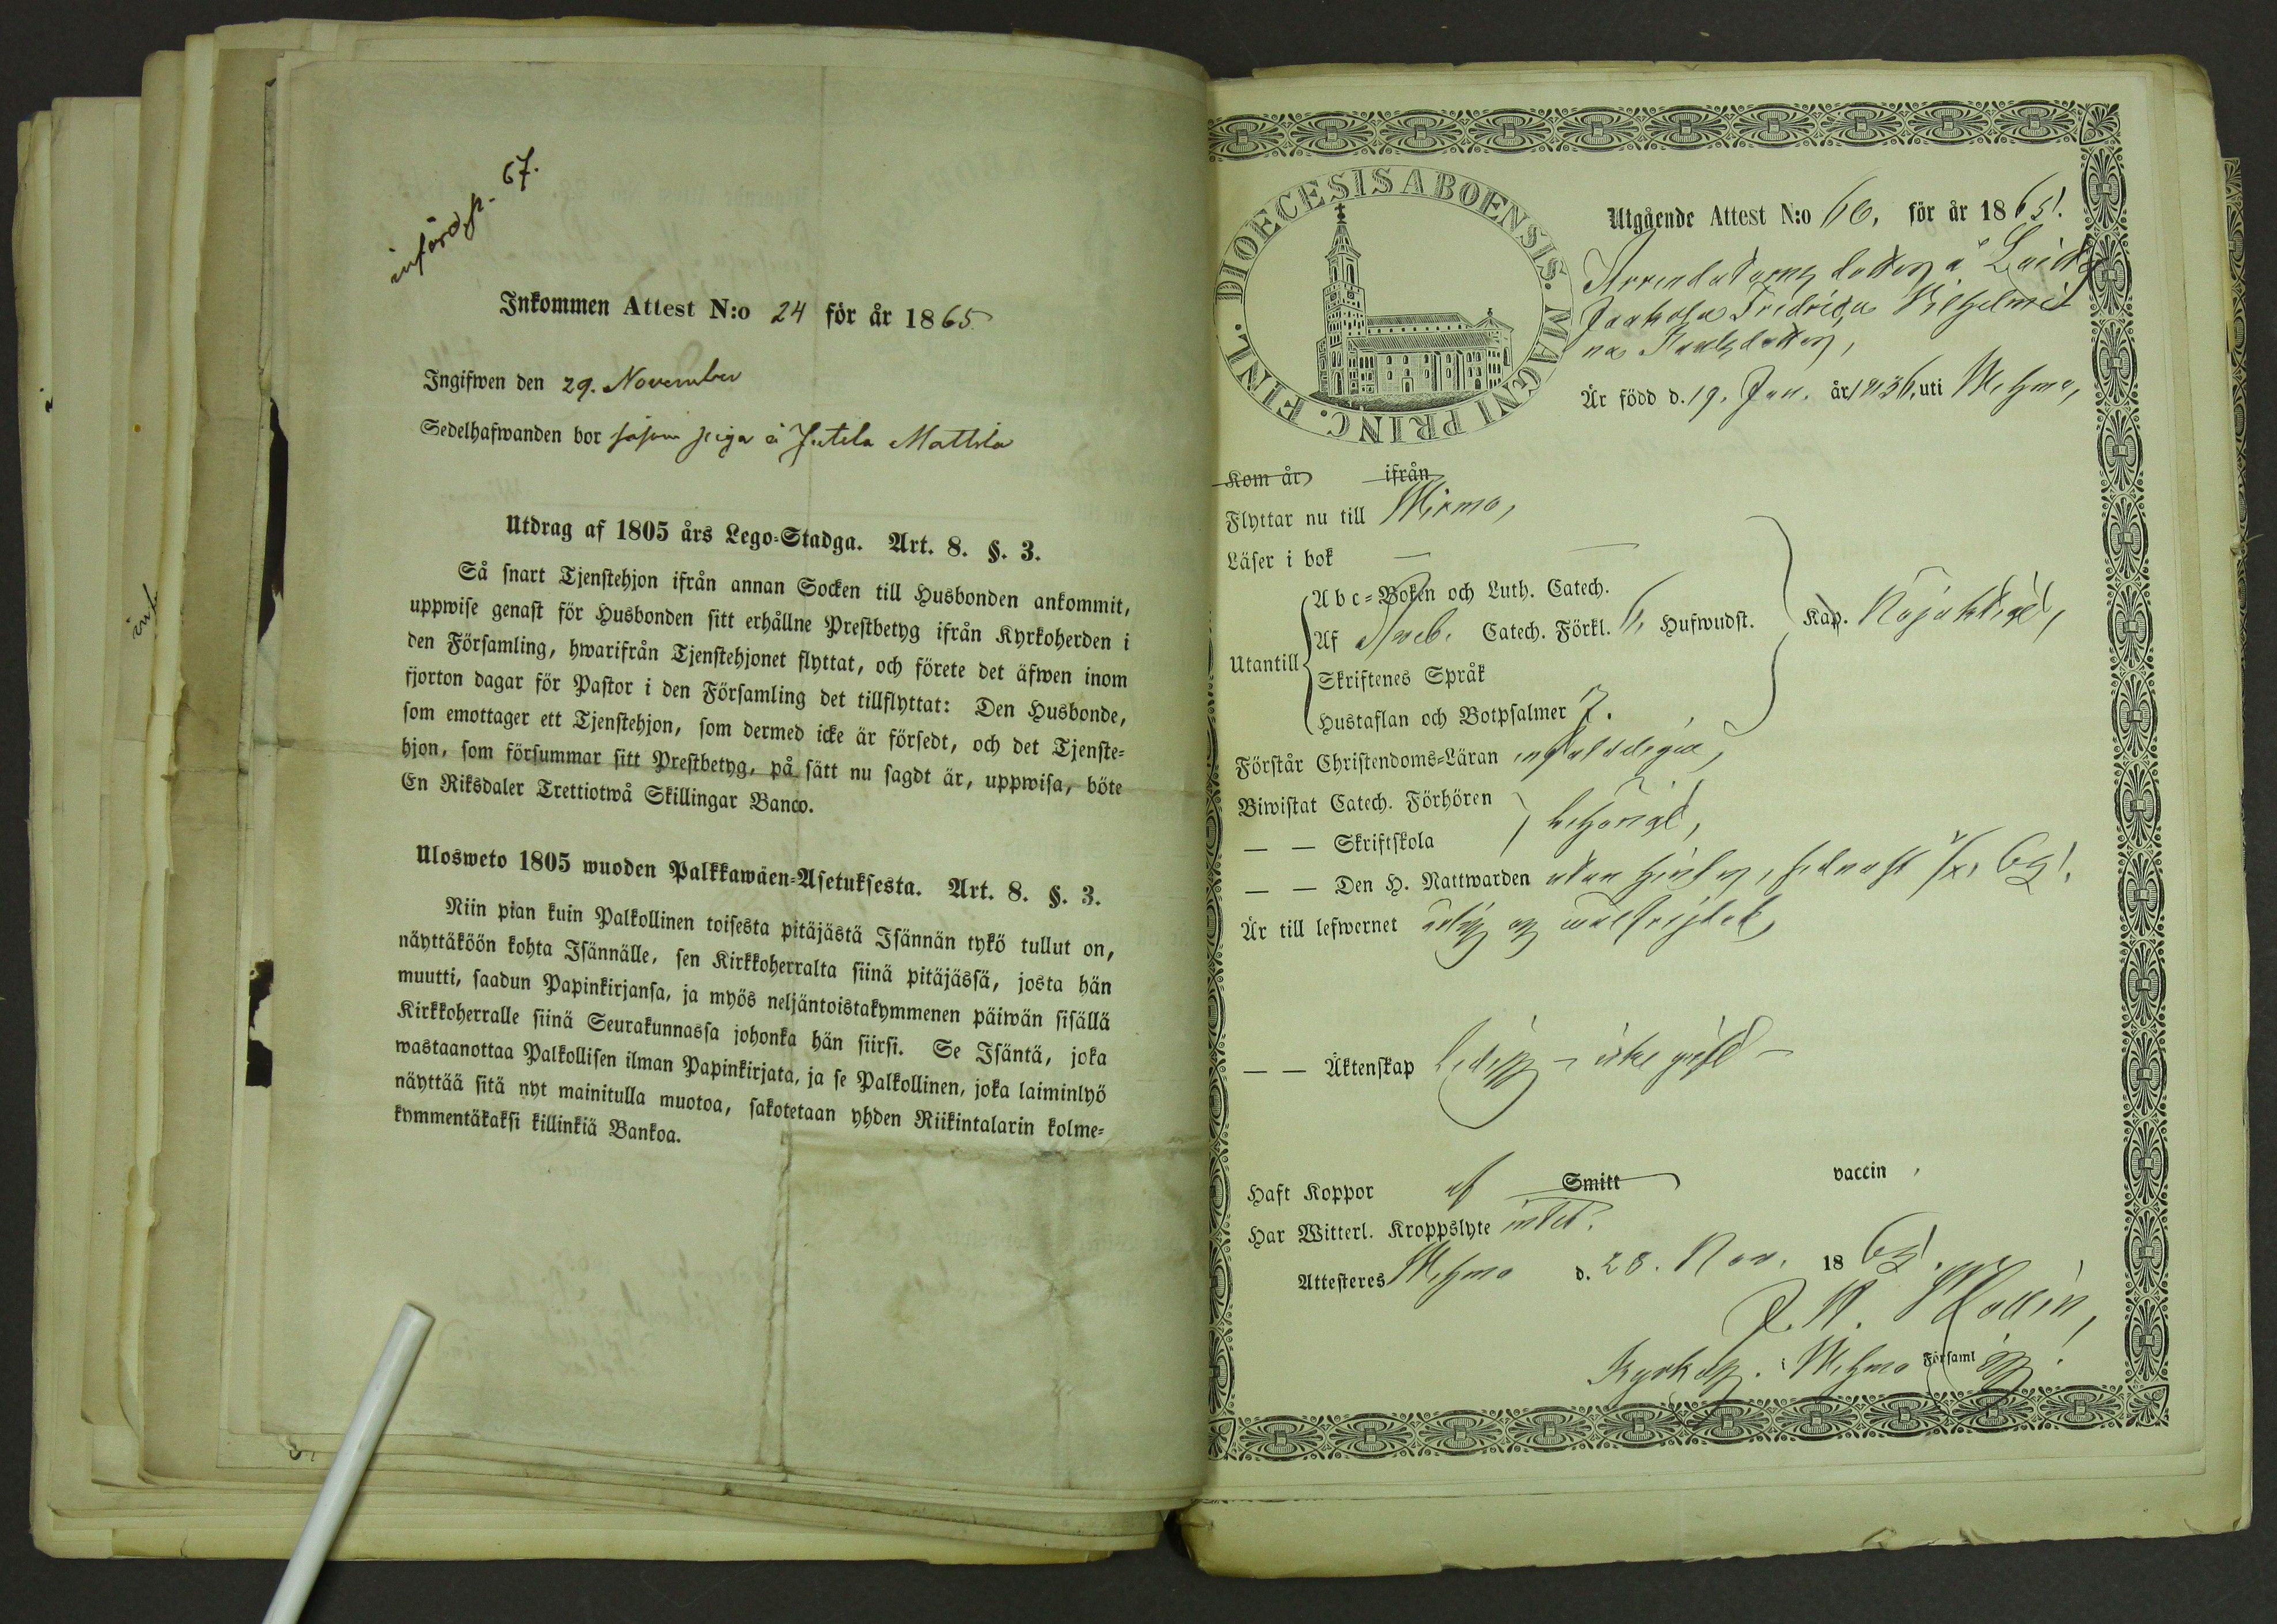 införd p. 67.
Inkommen Attest N:o 24 för år 1865
Ingifwen den 29. November
Sedelhafwanden bor såsom piga å Jutila Mattila
Utdrag af 1805 års Lego-Stadga. Art. 8. §. 3.
Så snart Tjenstehjon ifrån annan Socken till Husbonden ankommit,
uppwise genast för Husbonden sitt erhållne Prestbetyg ifrån Kyrkoherden i
den Församling, hwarifrån Tjenstehjonet flyttat, och förete det äfwen inom
fjorton dagar för Pastor i den Församling det tillflyttat: Den Husbonde,
som emottager ett Tjenstehjon, som dermed icke är försedt, och det Tjenste-
hjon, som försummar sitt Prestbetyg, på sätt nu sagdt är, uppwisa, böte
En Riksdaler Trettiotwå Skillingar Banco.
Ulosweto 1805 wuoden Palkkawäen-Asetuksesta. Art. 8. §. 3.
Niin pian kuin Palkollinen toisesta pitäjästä Isännän tykö tullut on,
näyttäköön kohta Isännälle, sen Kirkkoherralta siinä pitäjässä, josta hän
muutti, saadun Papinkirjansa, ja myös neljäntoistakymmenen päiwän sisällä
Kirkkoherralle siinä Seurakunnassa johonka hän siirsi. Se Isäntä, joka
wastaanottaa Palkollisen ilman Papinkirjata, ja se Palkollinen, joka laiminlyö
näyttää sitä nyt mainitulla muotoa, sakotetaan yhden Riikintalarin kolme-
kymmentäkaksi killinkiä Bankoa.
DIOECESIS ABOENSIS. MAGNI PRINC. FINL.
Utgående Attest N:o 66, för år 1865.
Arrendatorns dotter å
Jaakola Fredrica Vilhelmi
na Karlsdotter,
Är född d. 19. Jan. år 1836, uti Wehmo,
Kom år ifrån
Flyttar nu till Wirmo,
Läser i bok —
Utantill
Abc-Boken och Luth. Catech.
Af Sveb. Catech. Förkl. 6, Hufwudst. Kap. Nöjaktigt,
Skriftenes Språk
Hustaflan och Botpsalmer 7.
Förstår Christendoms-Läran
Biwistat Catech. Förhören
— — Skriftskola behörigt,
— — Den H. Nattwarden utan hinder, sednast 65.
Är till lefwernet ärlig och wälfrejdad
— — Äktenskap Ledig – icke gift –
Haft Koppor af Smitt vaccin,
Har Witterl. Kroppslyte intet.
Attesteres Wehmo d. 28. Nov. 1865.
Kyrkoh. i Wehmo Församl